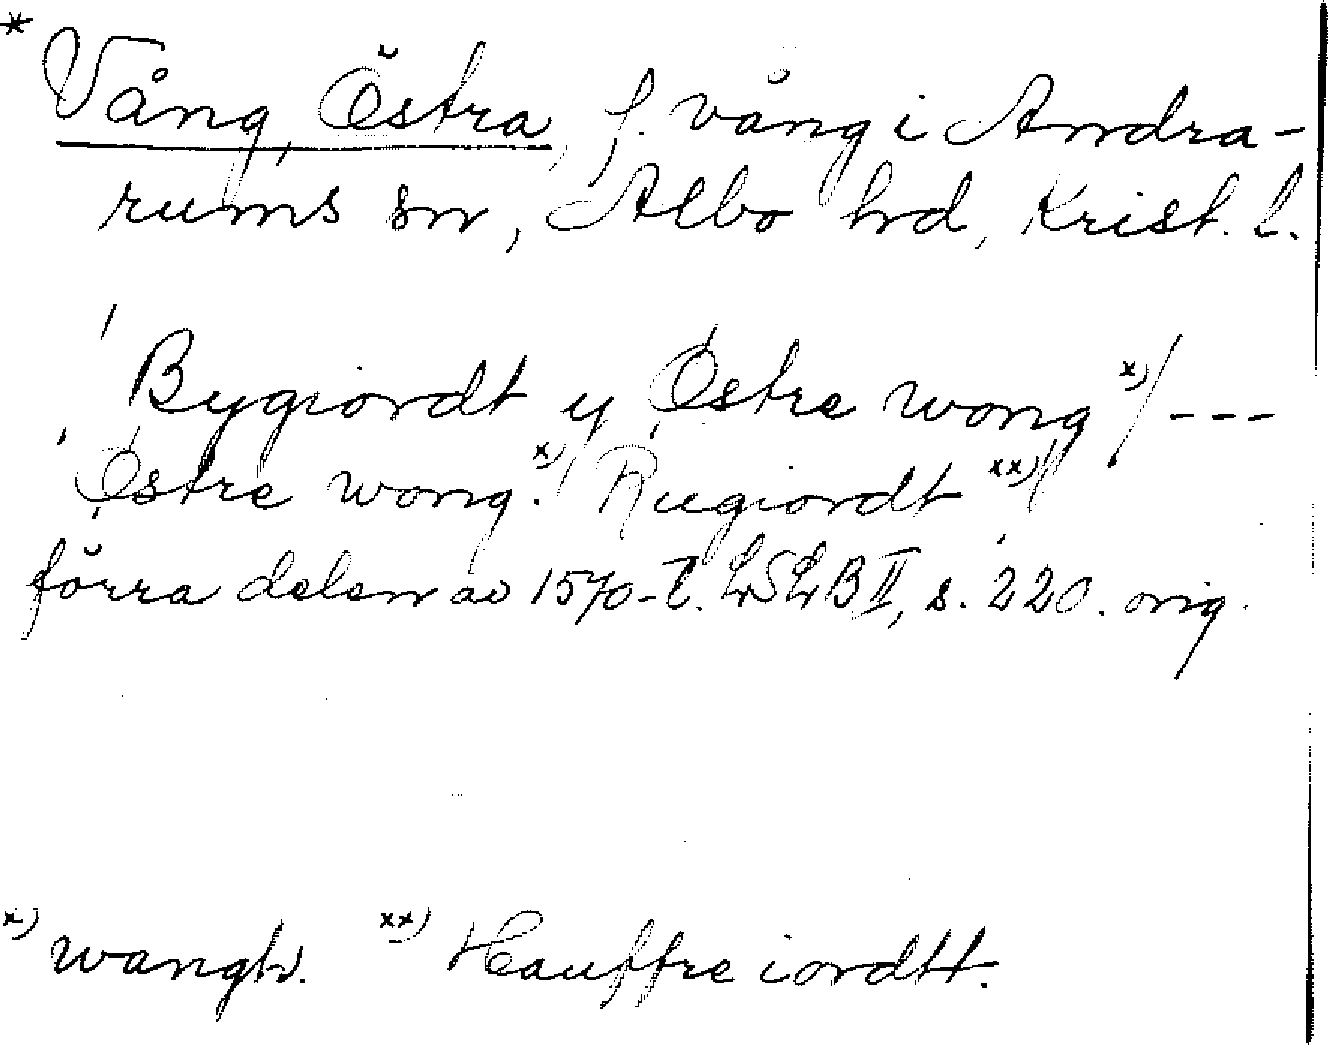 * Vång, Östra, f. vång i Andra-
rums sn, Albo hd, Krist. l.
Bygiordt y Østre wong x)/ ---
Østre wong. x)/ Rugiordt xx)/
förra delen av 1570-t. LSLB II, s. 220. orig.
x) wangh. xx) Hauffre iordtt.